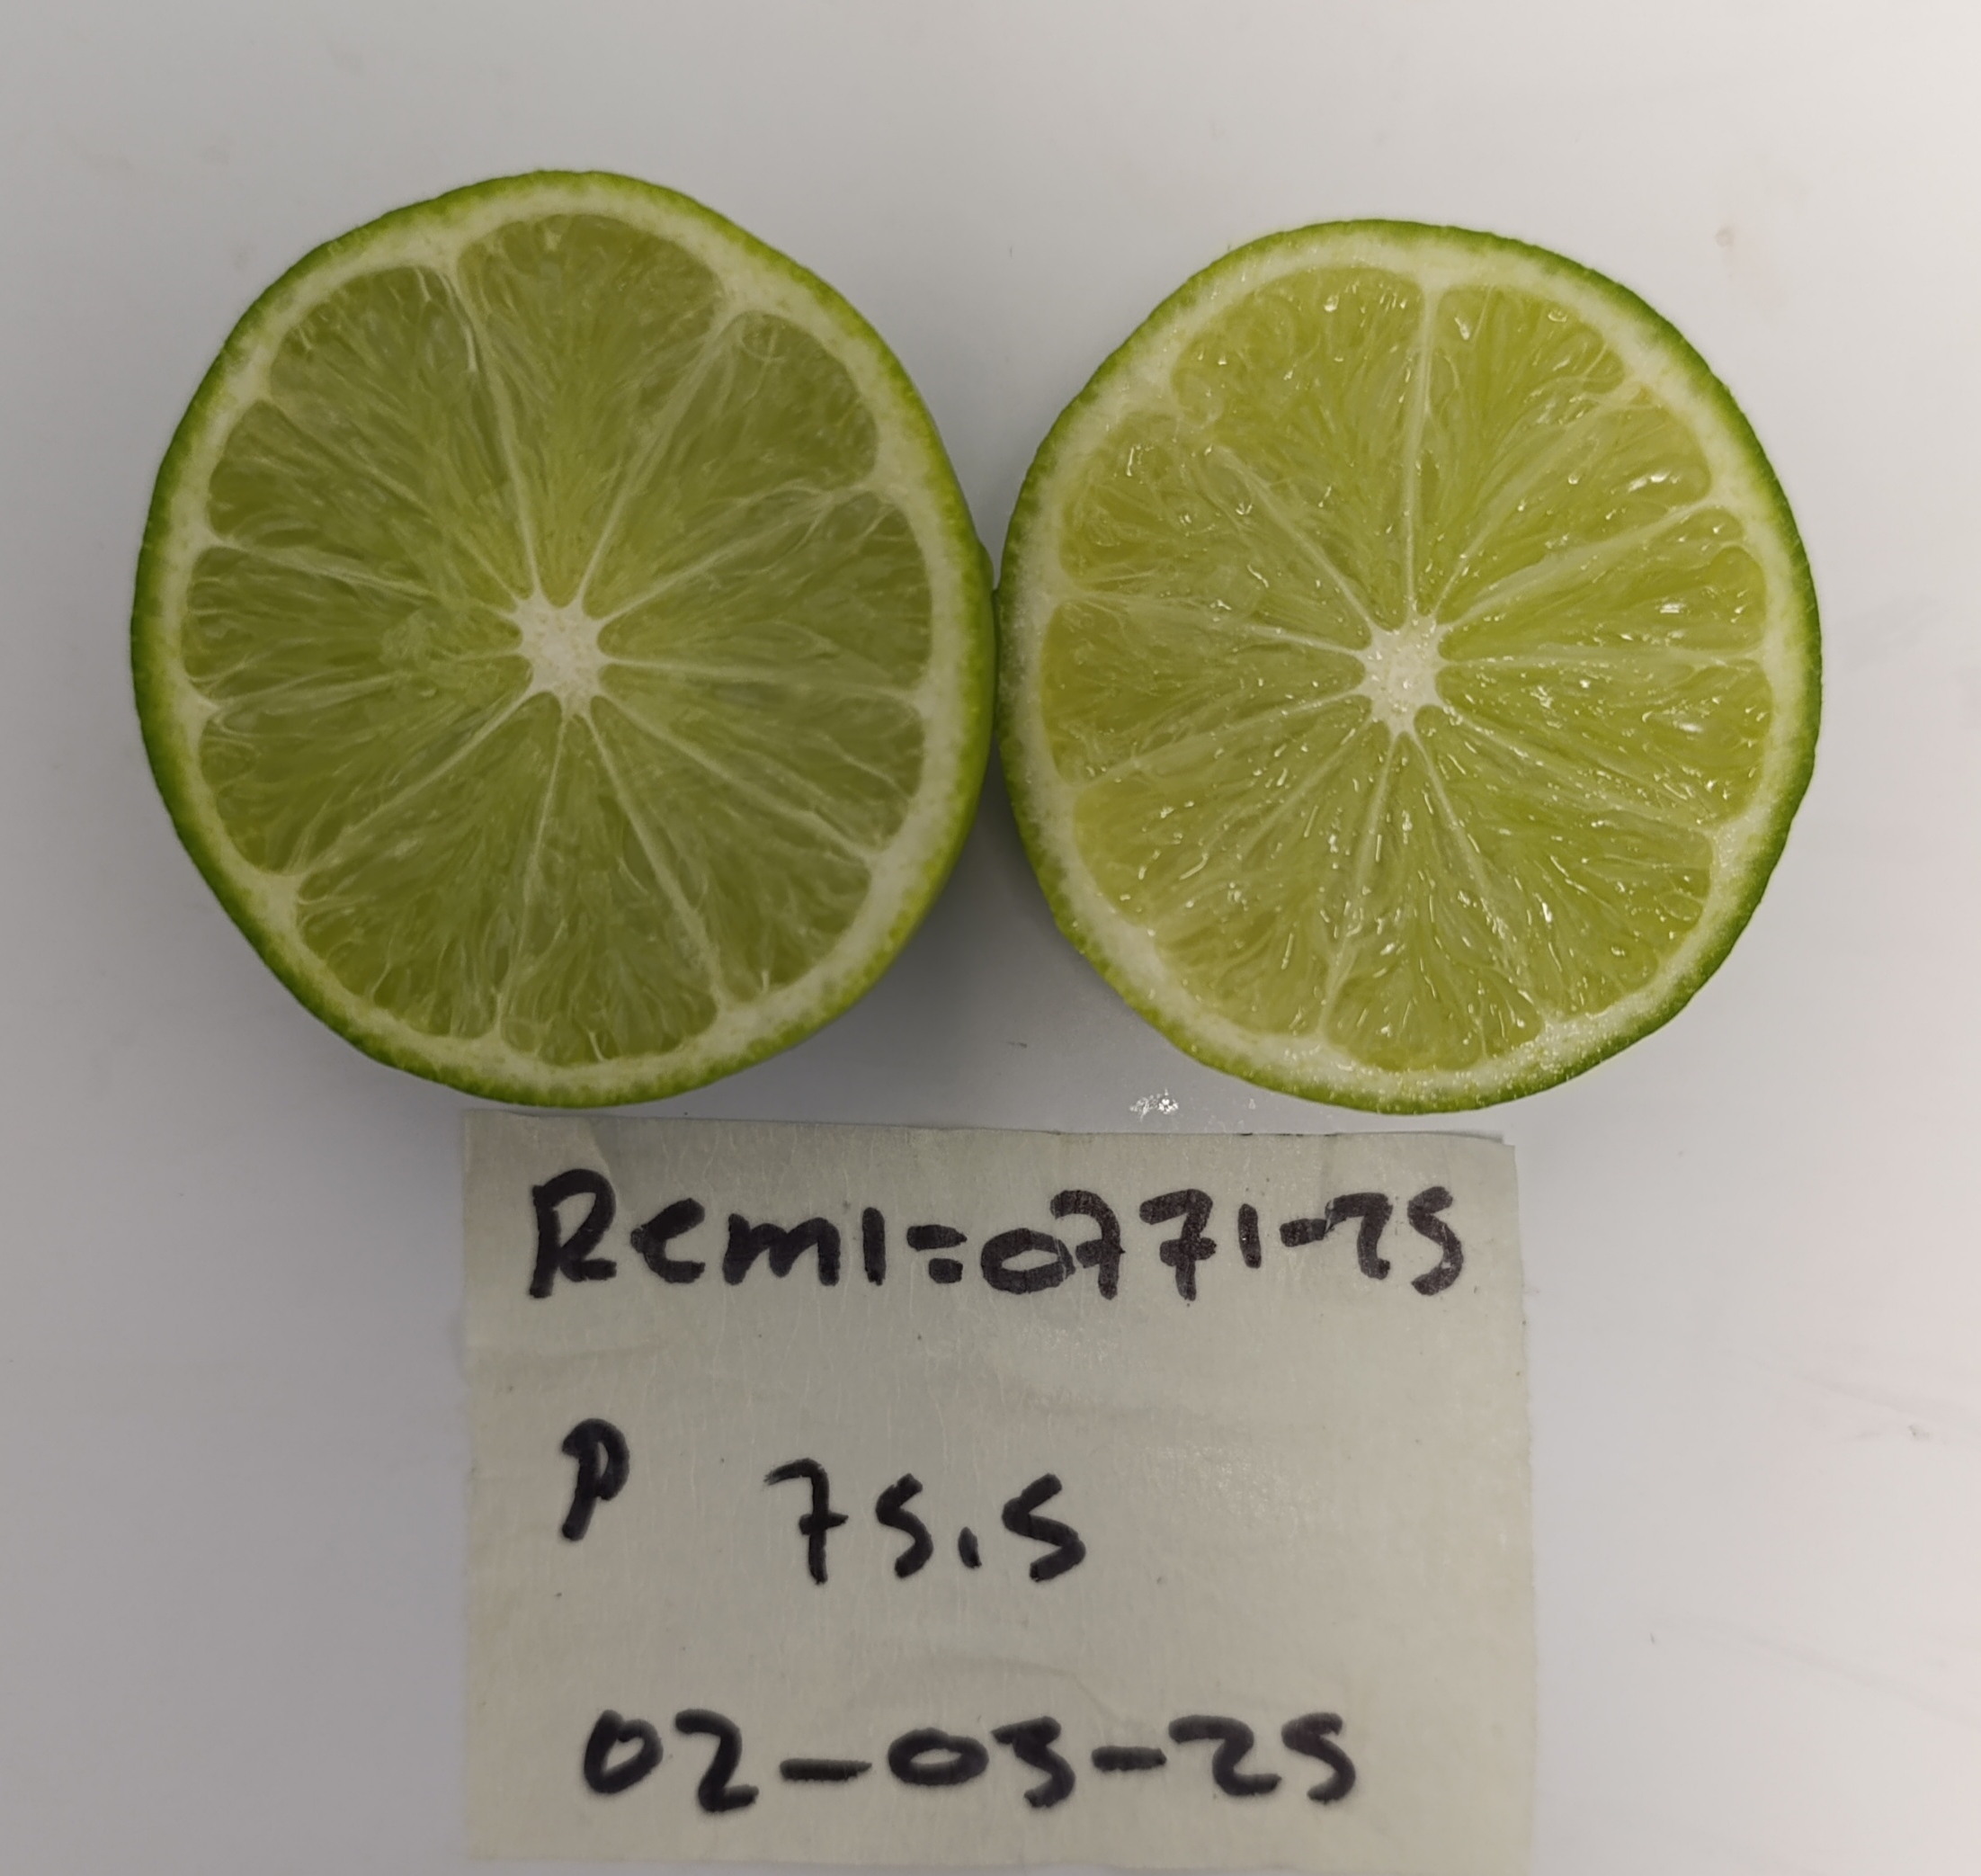 Remi=0771-25
P 75.5
02-03-25